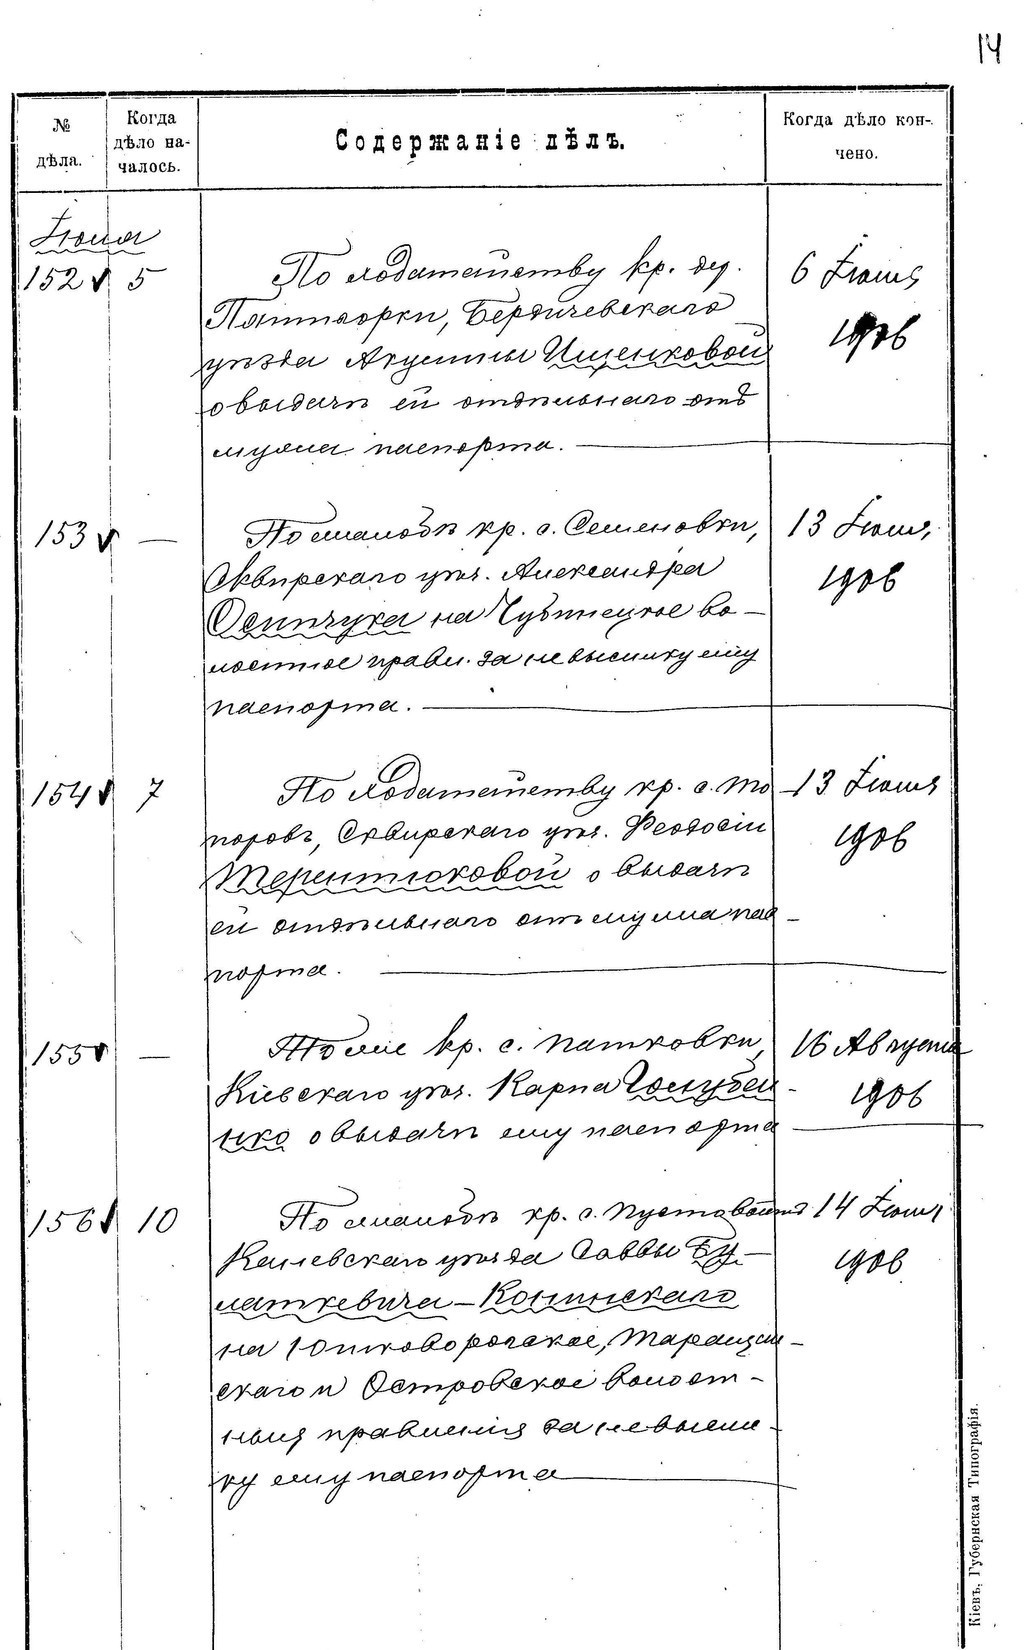 14
№ дѣла.
Когда дѣло началось.
Содержаніе дѣлъ.
Когда дѣло кончено.
Іюня
152 5 По ходатайству кр. дер. 6 Іюля
Пятигорки, Бердичевскаго 1906
уѣзда Акулины Ищенковой
о выдачѣ ей отдѣльнаго отъ
мужа паспорта.
153 — По жалобѣ кр. с. Семеновки, 13 Іюля
Сквирскаго уѣз. Александра 1906
Осипчука на Чубинецкое во-
лостное правл. за невысылку ему
паспорта.
154 7 По ходатайству кр. с. То- 13 Іюля
поровъ, Сквирскаго уѣз. Феодосіи 1906
Терентюковой о выдачѣ
ей отдѣльнаго отъ мужа пас-
порта.
155 — Тоже кр. с. Пятковки, 16 Августа
Кіевскаго уѣз. Карпа Голубен- 1906
нко о выдачѣ ему паспорта
156 10 По жалобѣ кр. с. 14 Іюля
Каневскаго уѣзда Саввы Бу- 1906
латкевича-Конинскаго
на Юшковорогское, Таращан-
скаго и Островское волост-
ныя правленія за невысыл-
ку ему паспорта
Кіевъ, Губернская Типографія.